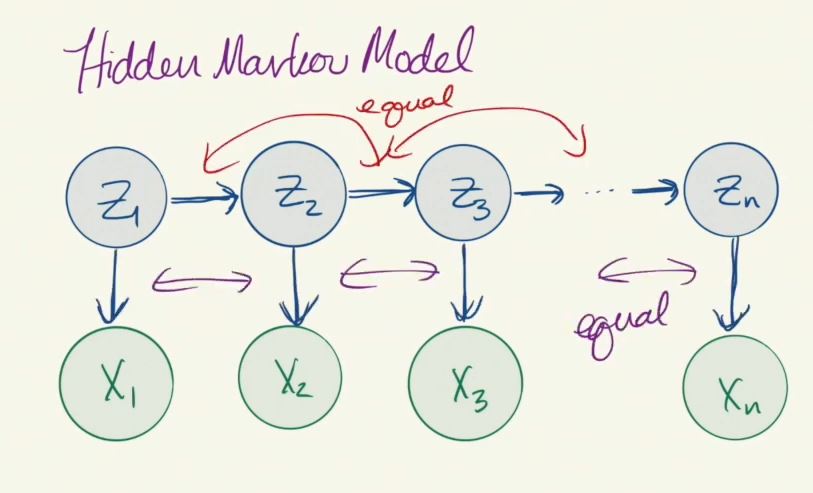 Hidden Markov Model
equal
Z1 Z2 Z3 ... Zn
equal
X1 X2 X3 Xn